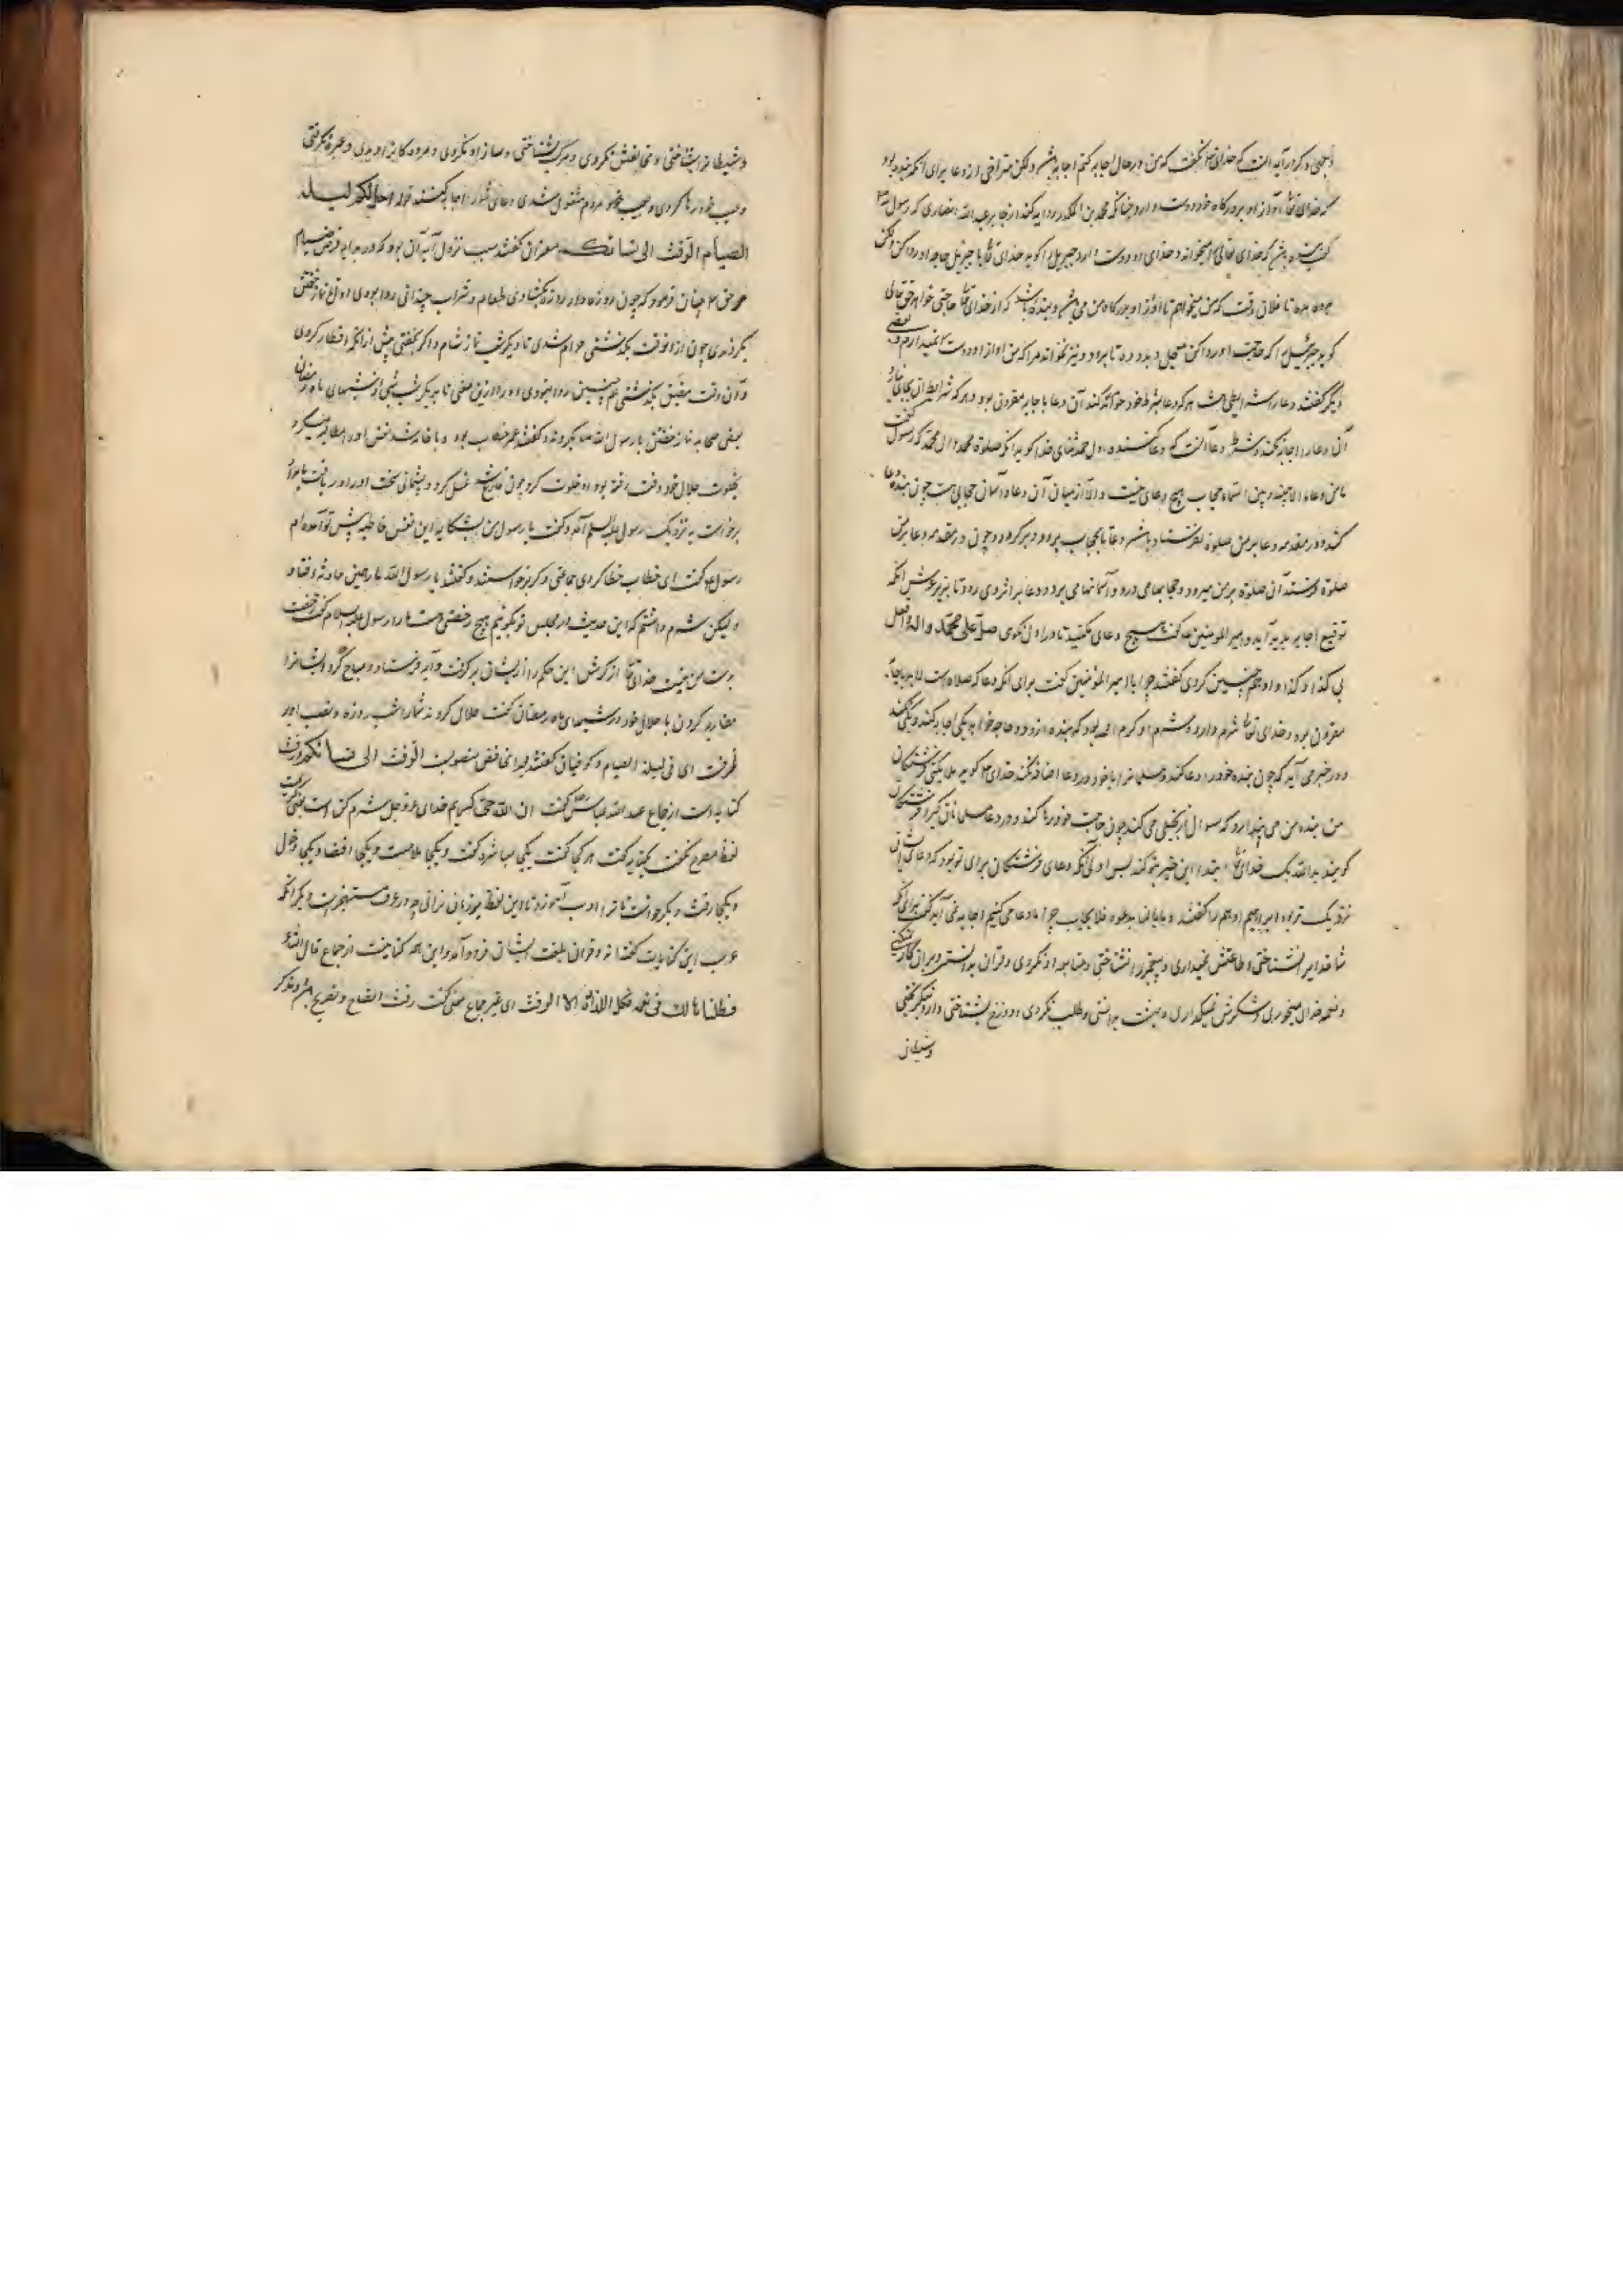 وجهی دیگر در آیه آنست که خدای تعالی گفت که من در حال اجابه کنم اجابه باشد ولکن متراخی از دعا برای آنکه بنده بود
که خدای تعالی آواز او بر درگاه خود دوست دارد چنانکه محمد بن المنکدر روایه کند از جابر عبد الله انصاری که رسول
گفت بنده باشد که خدای تعالی را میخواند و خدای او را دوست دارد جبریل را گوید خدای تعالی یا جبریل حاجه او روا کن ولکن
مده تا فلان وقت که من میخواهم تا آواز او بدرگاه من می باشد و بنده باشد که از خدای تعالی حاجتی خواهد حق تعالی
گوید جبرئیل را که حاجت او روا کن معجل و بدو ده تا برود و نیز نخواند مرا که من آواز او دوست نمیدارم و بعضی
دیگر گفتند دعا را شرایطی هست هر که دعا بشرط خود خواند کند آن دعا با جابه مقرون بود و هر که شرایط آن بجای نیارد
آن دعا را اجابه نکند و شرط دعا آنست که دعا کننده اول حمد و ثنای خدا گوید آنگه صلوة محمد و آل محمد که رسول گفت
ما من دعاء الا بینه و بین السماء حجاب هیچ دعای نیست و الا از میان آن دعا و آسمان حجابی هست چون بنده دعا
کند و در مقدمه دعا بر من صلوة نفرستاده باشد دعا تا بحجاب برود و برگردد و چون در مقدمه دعا بر من
صلوة فرستد آن صلوة بر من میرود و حجابها می درد و آسمانها می برد و دعا بر اثر وی رود تا بزیر عرش آنگه
توقیع اجابه پدید آید و امیر المومنین ع گفت هیچ دعای مکنید تا در اول نگوی صل علی محمد و اله و افعل
بی کذا و کذا و او هم چنین کردی گفتند چرا یا امیر المؤمنین گفت برای آنکه دعا که صلاه است لا بد باجابه
مقرون بود و خدای تعالی شرم دارد و شرم او کرم او بود که بنده از و دو حاجه خواهد یکی اجابه کند و یکی نکند
و در خبر می آید که چون بنده خود را دعا کند و مسلمانرا با خود در دعا اضافه نکند خدای تعالی گوید ملایکه و فرشتگان
من بنده من می پندارد که سوال از بخیلی می کند چون حاجت خود رها کند و در دعا مسلمانان گیرد فرشتگان
گویند بنزدیک خدای تعالی ابتدا این خیر بتو کند پس اولی آنکه دعای فرشتگان برای تو بود که دعای ایشان
نزدیک تر بود ابراهیم ادهم را گفتند و ما بالنا ندعوه فلا یجاب چرا ما دعا می کنیم اجابه نمی آید گفت برای آنکه
شما خدایرا شناختی و طاعتش نمیداری و پیغمبر را شناختی و متابعه او نکردی و قرآن بدانستی و بران کار نکنی
و نعمه خدای میخوری و شکرش نمیگذاری و بهشت بدانستی و طلب نکردی و دوزخ بشناختی و ازو نگریختی
وشیطان
وشیطانرا بشناختی و مخالفتش نکردی و مرگ بشناختی و ساز او نکردی و مردگانرا دیدی و عبره نگرفتی
و عیب خود رها کردی و بعیب مردم مشغول شدی دعای شما را اجابه کنند قوله احل لکم لیلة
الصیام الرفث الی نسائکم مفسران گفتند سبب نزول آیه آن بود که در بدایه فرض صیام
حق تعالی چنان فرمود که چون روزه دار روزه بگشادی طعام و شراب چندانی روا بودی او را تا نماز خفتن
بگزاردی چون از آن وقت بگذشتی حرام شدی تا دیگر شب نماز شام و اگر بخفتی پیش از آنکه افطار کردی
و آن وقت مضیق بگذشتی هم چنین روا نبودی او را و نزدیکی با زن بهیچ شب از شبهای ماه رمضان
بعضی صحابه نماز خفتن با رسول الله بکردند و گفتند عمر خطاب بود و با خانه شد نفس او را مطالبه میکرد
بخلوت حلال خود وقت رفته بود او خلوت کرد چون فارغ شد غسل کرد و پشیمانی سخت او را دریافت
برخاست بنزدیک رسول علیه السلام آمد و گفت یا رسول الله من بشکایه این نفس خاطیه پیش تو آمده ام
رسول گفت ای خطاب خطا کردی جماعتی دیگر برخواستند و گفتند یا رسول الله ما را همین حادثه افتاد
ولیکن شرم داشتیم که این حدیث در مجلس تو بگوییم هیچ رخصتی هست ما را رسول علیه السلام گفت رخصت
بدست من نیست خدای تعالی از کرمش این حکم را از ایشان برگرفت و آیه فرستاد و مباح کرد ایشانرا
مقاربه کردن با حلال خود در شبهای ماه رمضان گفت حلال کردند شما را شب روزه و نصب او بر
ظرفست ای فی لیلة الصیام و کوفیان گفتند بنزع خافض منصوبست الرفث الی نسائکم و رفث
کنایه است از جماع عبد الله عباس گفت ان الله حیی کریم خدای عز و جل شرم کن است یعنی کریم است
لفظ مصرح نگفت بکنایه گفت هر کجا گفت یکی مباشره گفت و یکی ملامست و یکی افضا و یکی دخول
و یکی رفث و یکی حرث تا ترا ادب آموزد تا و این لفظ بر زبان نرانی که در عرف مستهجن است دیگر آنکه
عرب این کنایات گفته اند و قرآن بلغت ایشان فرود آمد و این همه کنایتست از جماع قال الشاعر
فظلنا هنالك فی نعمة و کل اللذاذة الا الرفث ای غیر جماع یعنی گفت رفث افصاح و تصریح بود و بذکر